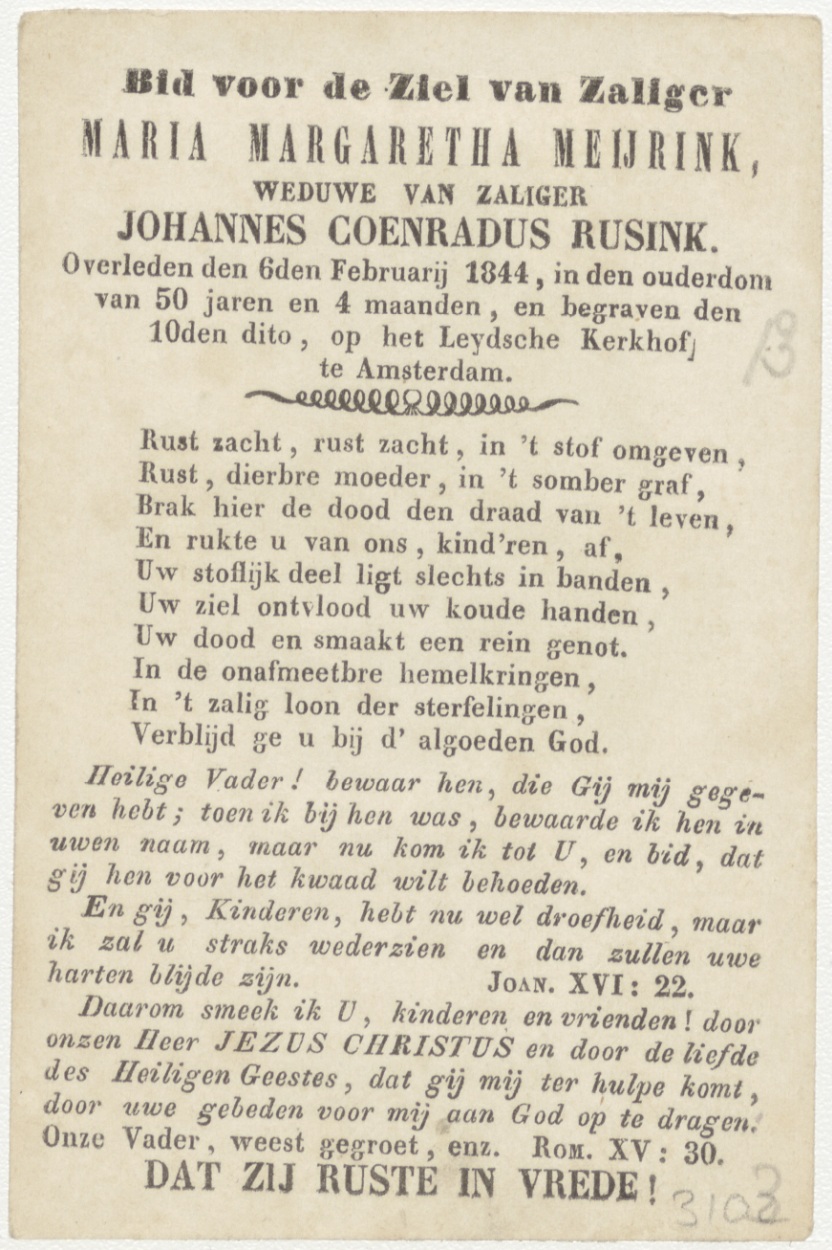 Bid voor de Ziel van Zaliger
MARIA MARGARETHA MEIJRINK,
WEDUWE VAN ZALIGER
JOHANNES COENRADUS RUSINK.
Overleden den 6den Februarij 1844, in den ouderdom
van 50 jaren en 4 maanden, en begraven den
10den dito, op het Leydsche Kerkhof,
te Amsterdam.
Rust zacht, rust zacht, in 't stof omgeven,
Rust, dierbre moeder, in 't somber graf,
Brak hier de dood den draad van 't leven,
En rukte u van ons, kind'ren, af,
Uw stoflijk deel ligt slechts in banden,
Uw ziel ontvlood uw koude handen,
Uw dood en smaakt een rein genot.
In de onafmeetbre hemelkringen,
In 't zalig loon der sterfelingen,
Verblijd ge u bij d' algoeden God.
Heilige Vader! bewaar hen, die Gij mij gege-
ven hebt; toen ik bij hen was, bewaarde ik hen in
uwen naam, maar nu kom ik tot U, en bid, dat
gij hen voor het kwaad wilt behoeden.
En gij, Kinderen, hebt nu wel droefheid, maar
ik zal u straks wederzien en dan zullen uwe
harten blijde zijn. JOAN. XVI: 22.
Daarom smeek ik U, kinderen en vrienden! door
onzen Heer JEZUS CHRISTUS en door de liefde
des Heiligen Geestes, dat gij mij ter hulpe komt,
door uwe gebeden voor mij aan God op te dragen.
Onze Vader, weest gegroet, enz. ROM. XV: 30.
DAT ZIJ RUSTE IN VREDE!